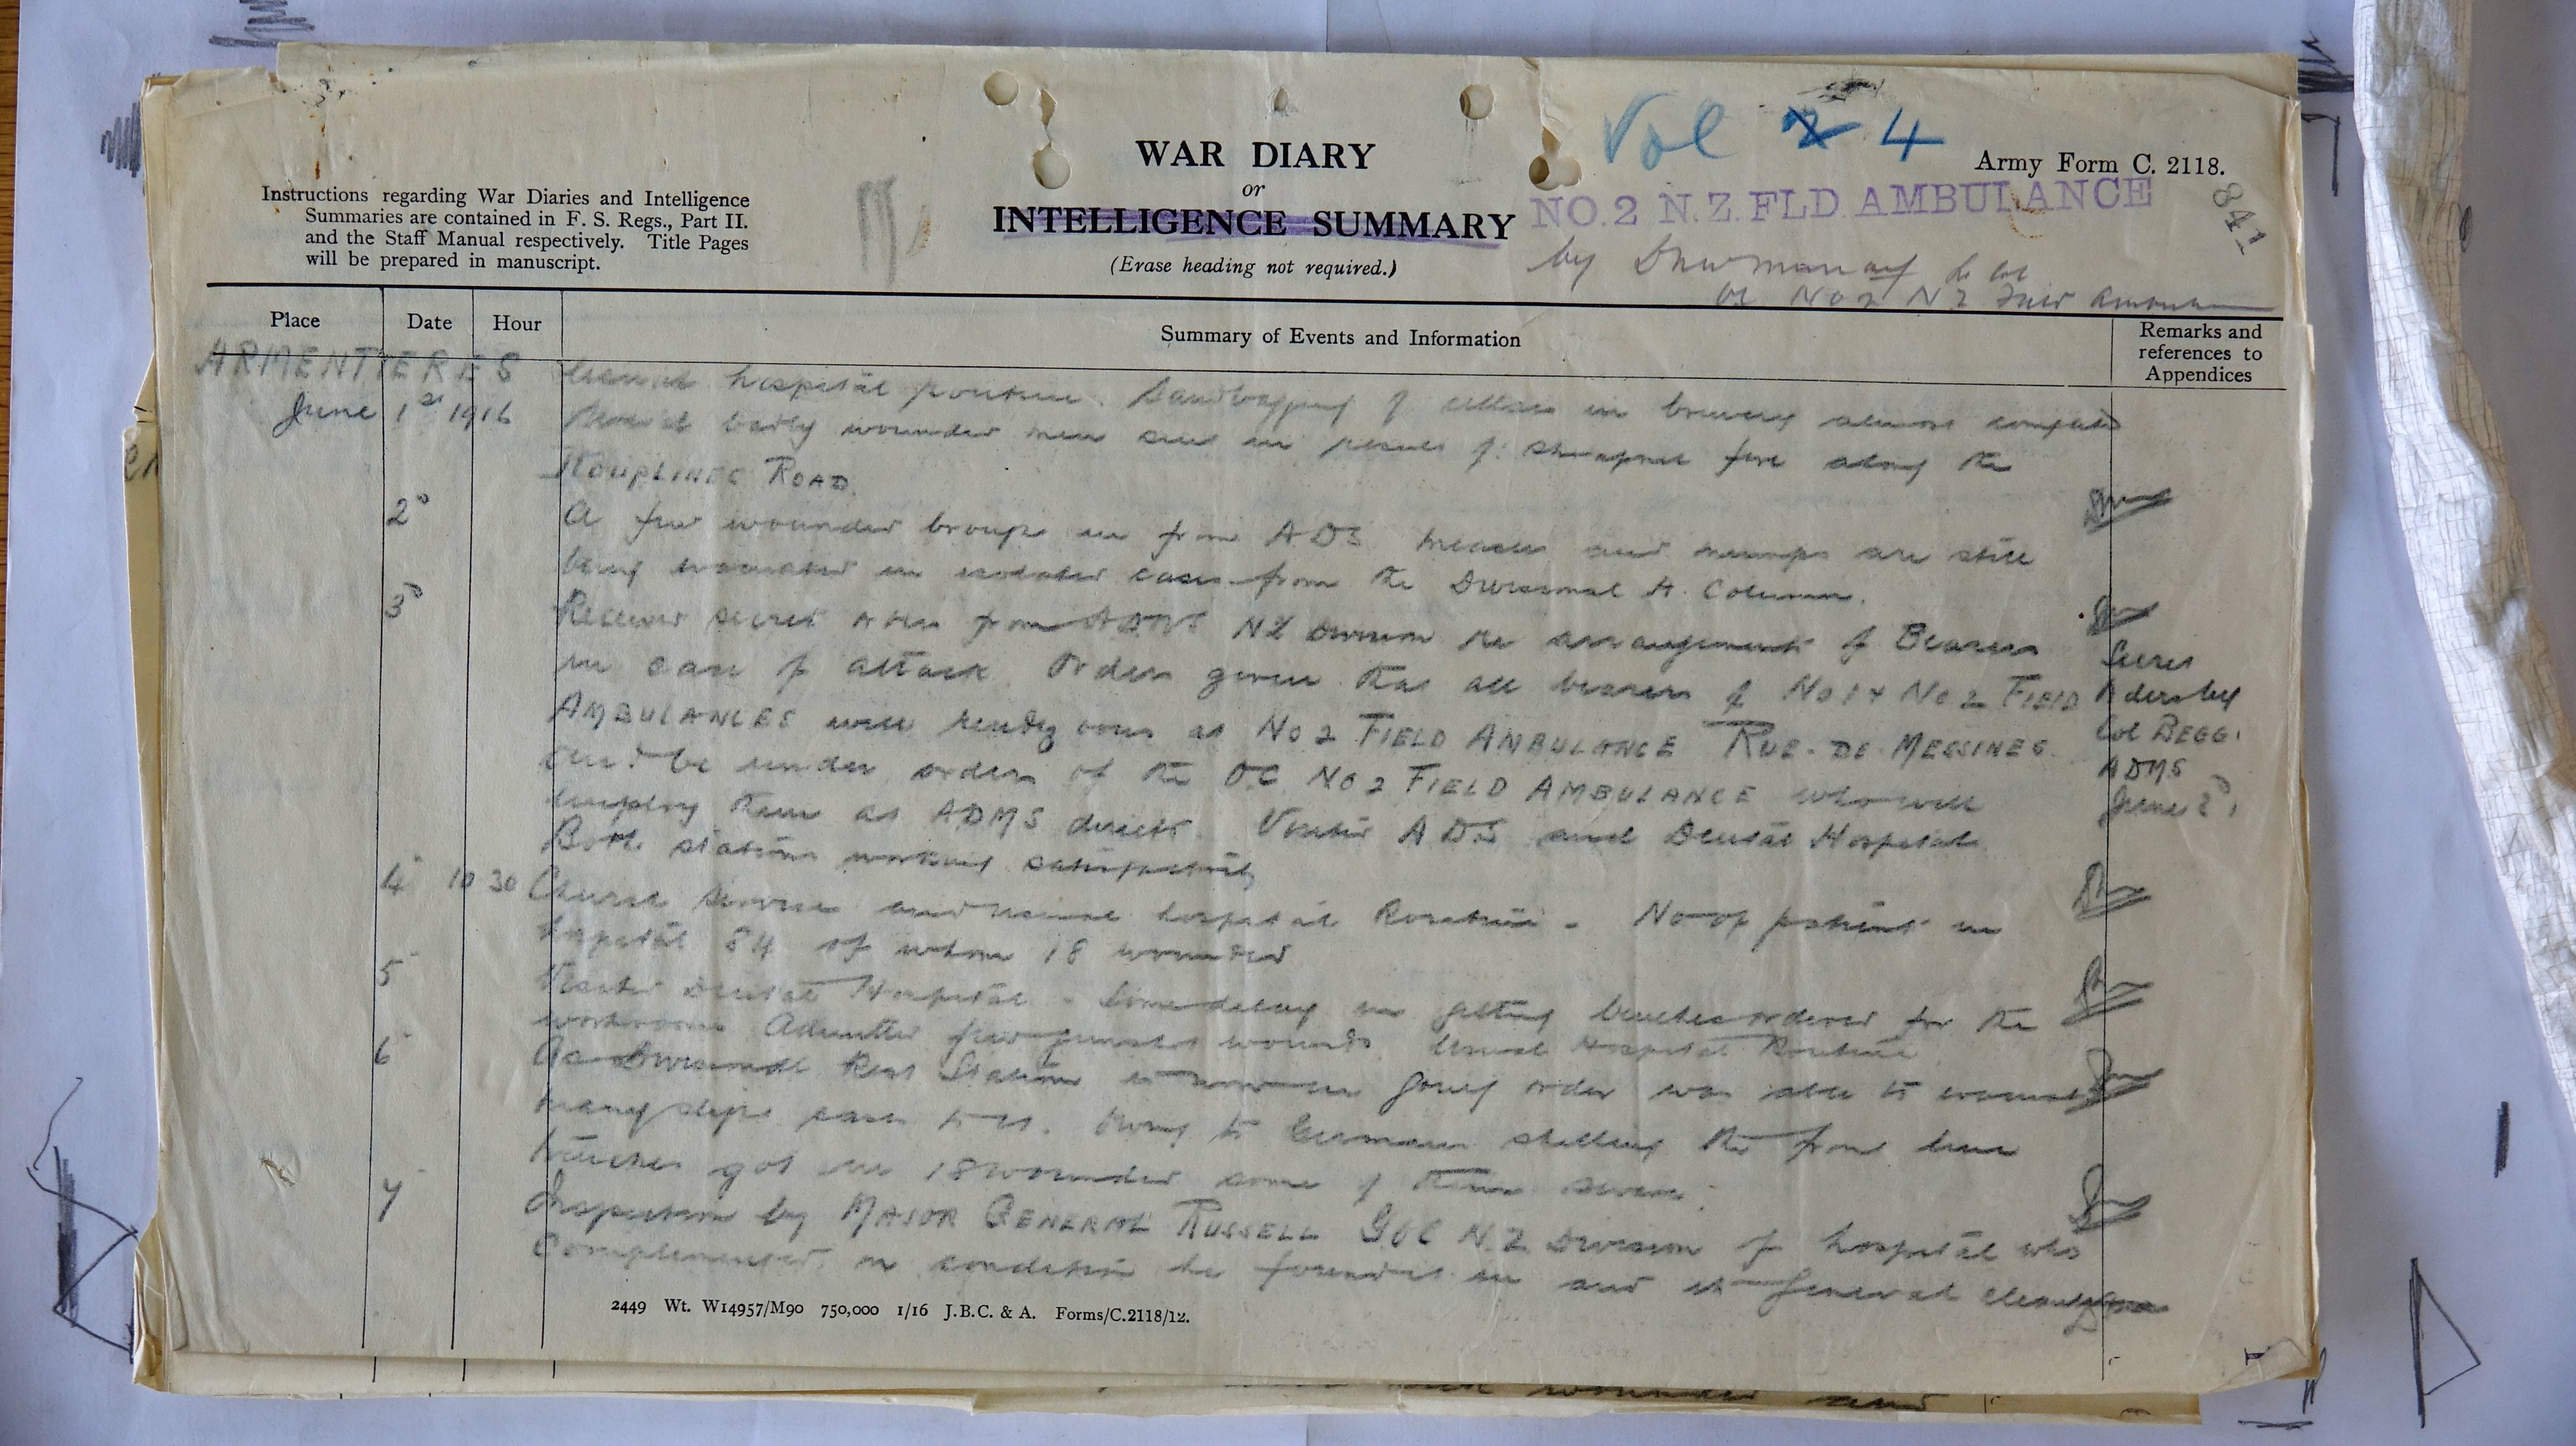 Vol 2 4
Army Form C. 2118.
WAR DIARY
or
INTELLIGENCE SUMMARY
(Erase heading not required.)
Instructions regarding War Diaries and Intelligence
Summaries are contained in F. S. Regs., Part II.
and the Staff Manual respectively. Title Pages
will be prepared in manuscript.
NO. 2 N.Z. FLD. AMBULANCE
841
by Lt Col
OC No 2 N Z Field Ambulance
Place
Date
Hour
Summary of Events and Information
Remarks and
references to
Appendices
ARMENTIERES
June 1st 1916
Usual hospital routine. Sandbagging of cellars in brewery almost completed
Several badly wounded men sent in result of shrapnel fire along the
HOUPLINES ROAD.
2d
A few wounded brought in from ADS. Measles and mumps are still
being evacuated in isolated cases from the Divisional A. Column.
3d
Received secret orders from ADMS NZ Division re arrangements of Bearers
in case of attack. Orders given that all bearers of No 1 + No 2 FIELD
AMBULANCES will rendezvous at No 2 FIELD AMBULANCE RUE-DE-MESSINES
and be under orders of the O.C. No 2 FIELD AMBULANCE who will
employ them as ADMS directs. Visited ADS and Dental Hospital
Both stations working satisfactorily
Secret
Orders by
Col BEGG.
ADMS
June 2d.
4 10 30 Church Service and usual hospital Routine - No of patients in
hospital 84 of whom 18 wounded
5
Visited Dental Hospital - Some delay in getting benches ordered for the
workrooms Admitted few gunshot wounds. Usual Hospital Routine
6
As Divisional Rest Station is now in going order was able to evacuate
many slight cases to it. Owing to Germans shelling the front line
trenches got in 18 wounded some of them severe.
7
Inspection by MAJOR GENERAL RUSSELL GOC N.Z. Division of hospital who
Complimented on condition he found it in and its general
2449 Wt. W14957/M90 750,000 1/16 J.B.C. & A. Forms/C.2118/12.
wounded and